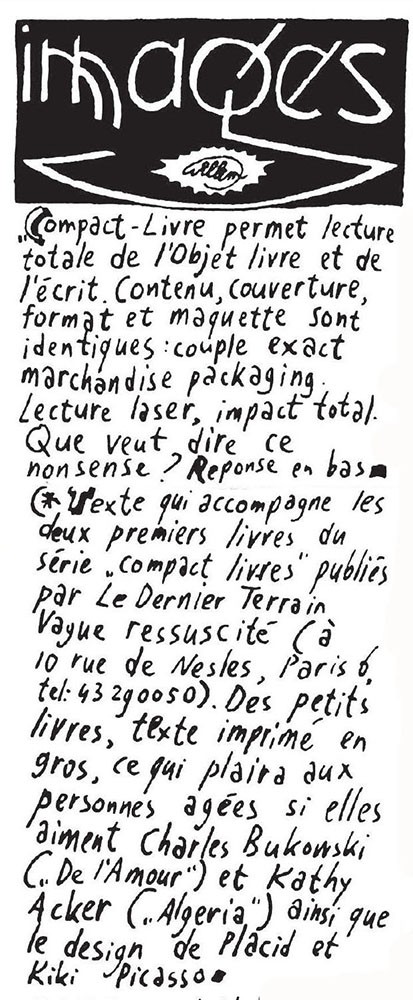 images
Willem
„Compact-Livre permet lecture
totale de l'Objet livre et de
l'écrit. Contenu, couverture,
format et maquette sont
identiques : couple exact
marchandise packaging.
Lecture laser, impact total.
Que veut dire ce
nonsense ? Reponse en bas
(* Texte qui accompagne les
deux premiers livres du
série „compact livres" publiés
par Le Dernier Terrain
Vague ressuscité (à
10 rue de Nesles, Paris 6,
tel: 43 290050). Des petits
livres, texte imprimé en
gros, ce qui plaira aux
personnes agées si elles
aiment Charles Bukowski
(„De l'Amour") et Kathy
Acker („Algeria") ainsi que
le design de Placid et
Kiki Picasso